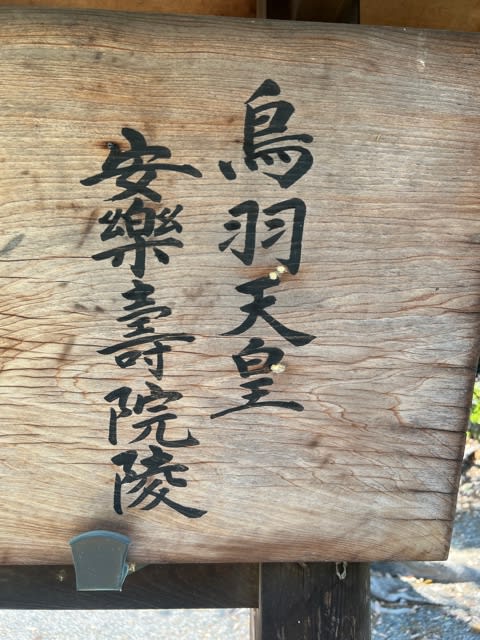 鳥羽天皇
安樂壽院陵